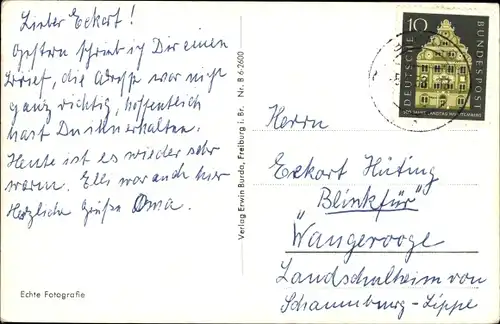 Lieber Eckart!
Gestern schrieb ich Dir einen
Brief, die Adresse war nicht
ganz richtig, hoffentlich
hast Du ihn erhalten.
Heute ist es wieder sehr
warm. Elle war auch hier
Herzliche Grüße Oma.
Echte Fotografie
Verlag Erwin Burda, Freiburg i. Br. Nr. B 6 2600
10
DEUTSCHE
BUNDESPOST
Herrn
Eckart Hüting
„Blinkfür"
Wangerooge
Landschulheim von
Schaumburg-Lippe